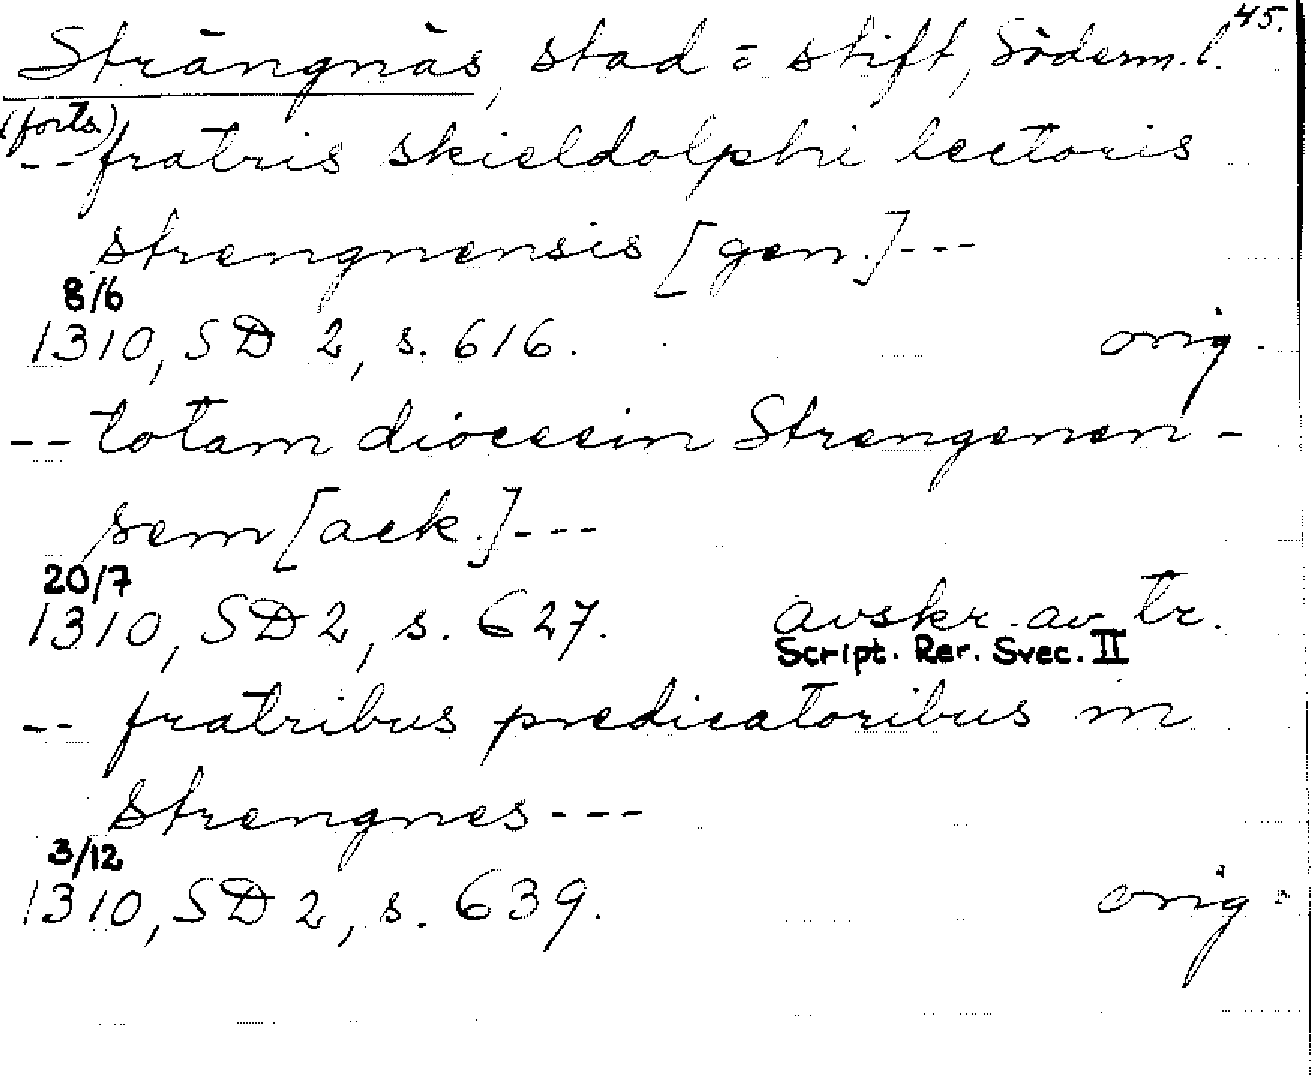 45.
Strängnäs, stad = stift, Söderm. l.
(forts.)
-- fratris skieldolphi lectoris
strengnensis [gen.] ---
8/6
1310, SD 2, s. 616. orig.
-- totam diocesin Strengenen-
sem [ack.] ---
20/7
1310, SD 2, s. 627. avskr. av tr.
Script. Rer. Svec. II
-- fratribus predicatoribus in
strengnes ---
3/12
1310, SD 2, s. 639. orig.